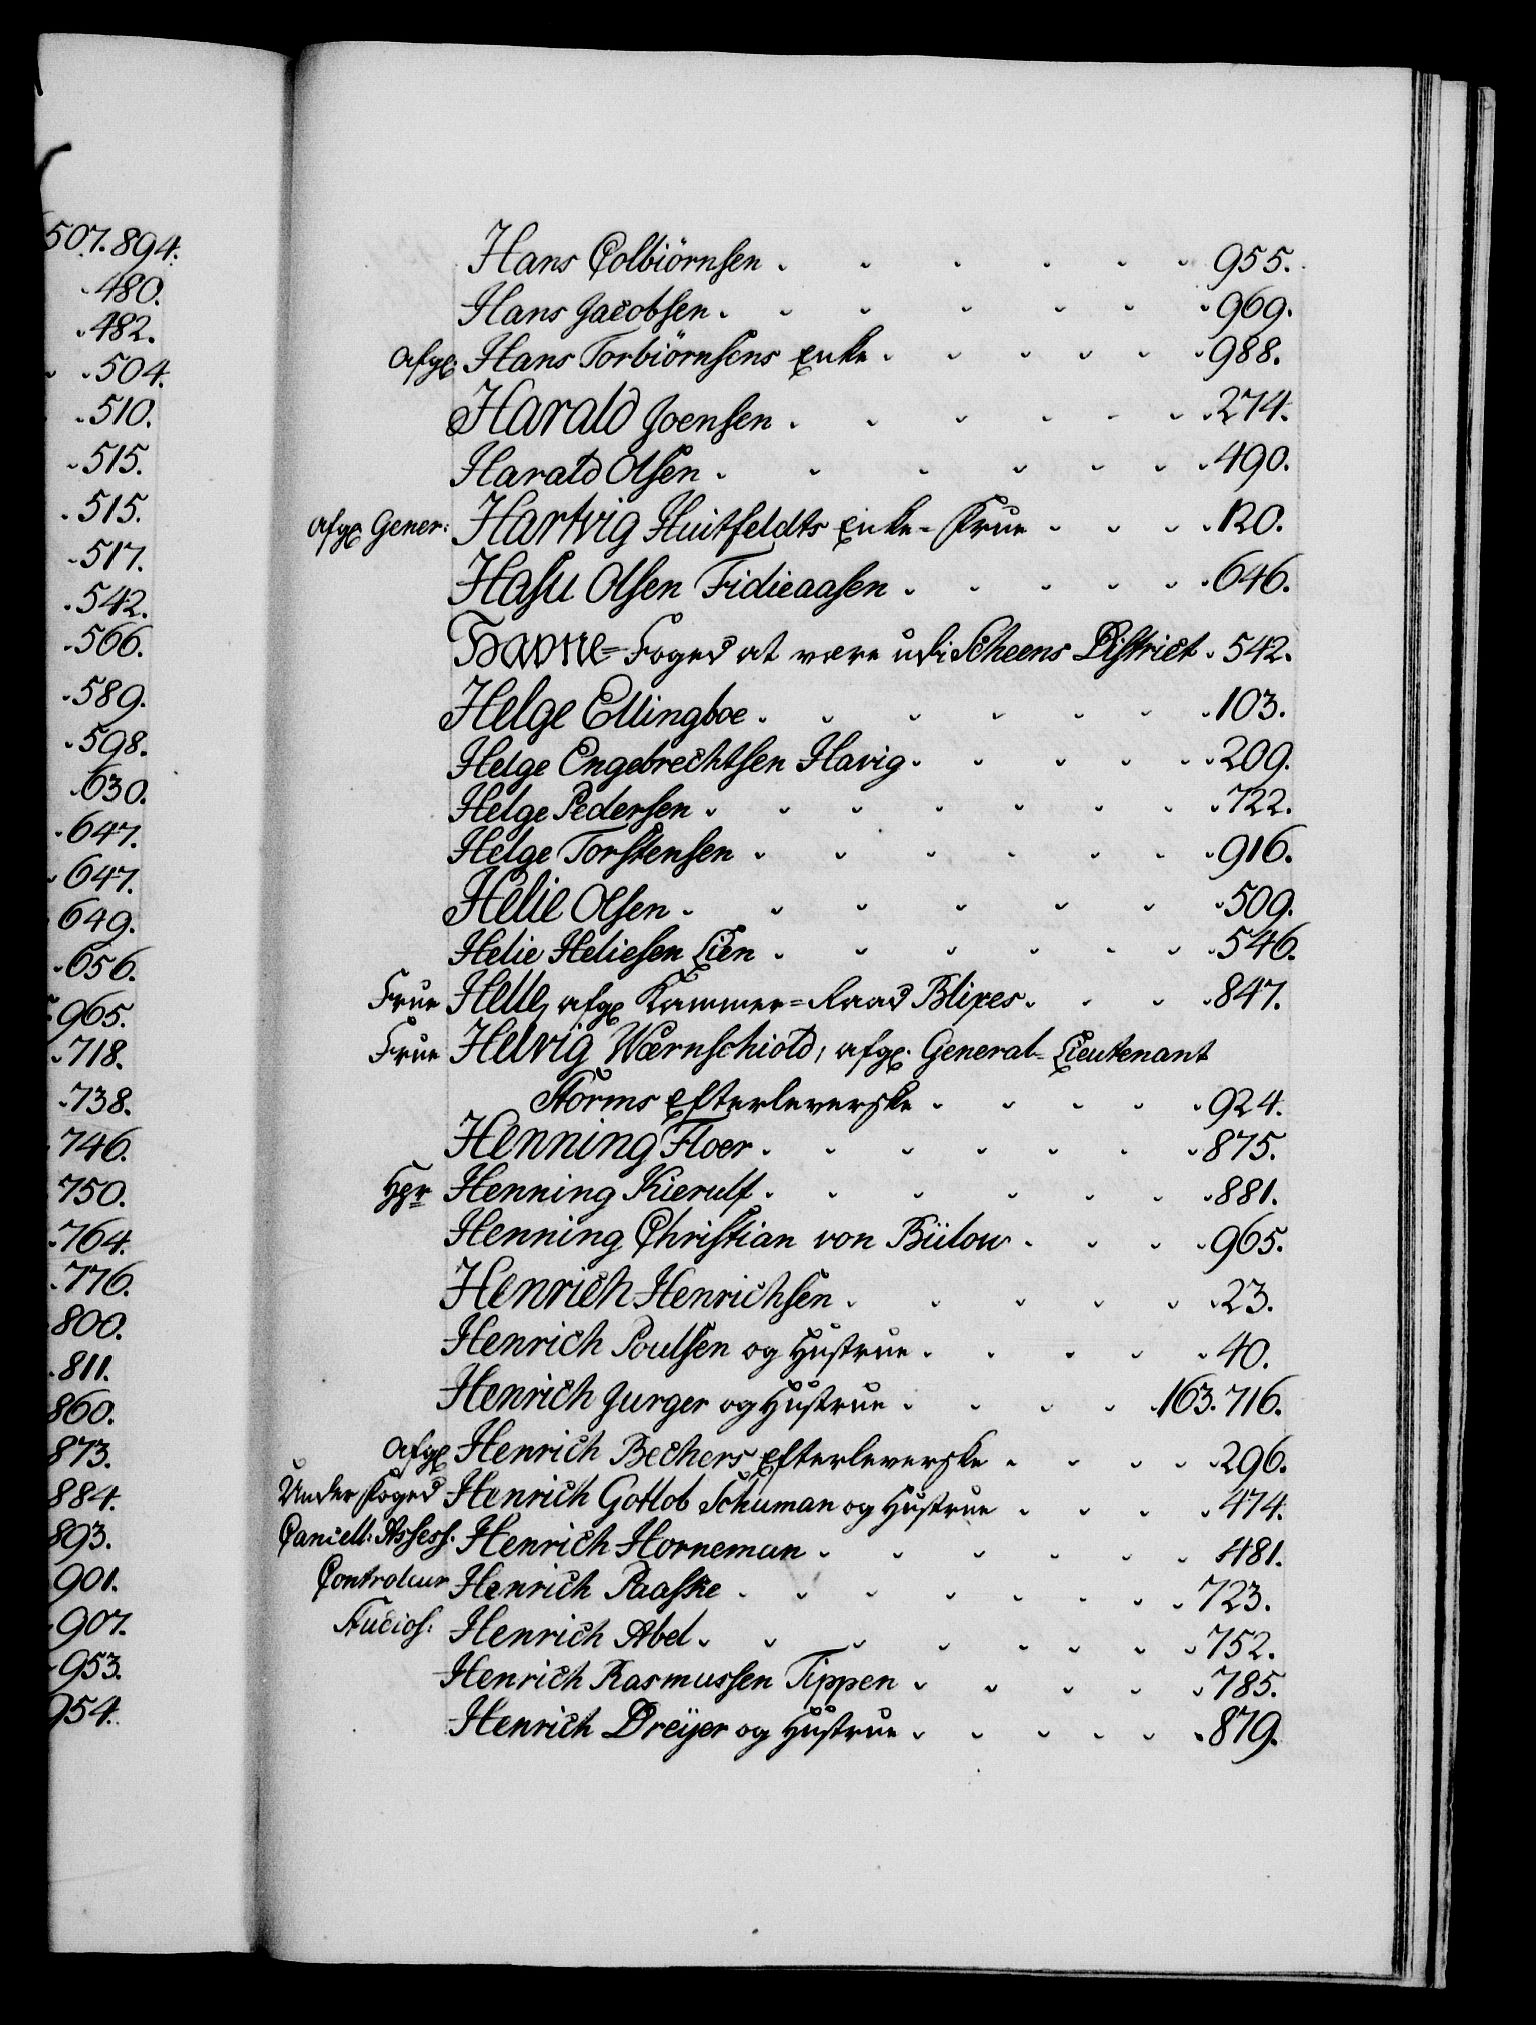 507. 894.
480.
482.
504.
510.
515.
515.
517.
542.
566.
589.
598.
630.
647.
647.
649.
656.
965.
718.
738.
746.
750.
764.
776.
800.
811.
860.
873.
884.
893.
901.
907.
953.
954.
Hans Colbiörnsen . 955.
Hans Jacobsen . 969.
Afg. Hans Torbiörnsens Enke . 988.
Harald Joensen . 274.
Harald Olsen . 490.
Afg. Gener: Hartvig Huitfeldts Enke-Frue . 120.
Hasu Olsen Fidieaasen . 646.
Havne-Foged at være udi Scheens District . 542.
Helge Ellingboe . 103.
Helge Engebrechtsen Havig . 209.
Helge Pedersen . 722.
Helge Torstensen . 916.
Helie Olsen . 509.
Helie Heliesen Lien . 546.
Frue Helle, afg. Kammer-Raad Blixes . 847.
Frue Helvig Wærnschiold, afg. General-Lieutenant
Storms Efterleverske . 924.
Henning Floer . 875.
Hr Henning Kierulf . 881.
Henning Christian von Bülow . 965.
Henrich Henrichsen . 23.
Henrich Poulsen og Hustrue . 40.
Henrich Jurger og Hustrue . 163. 716.
Afg. Henrich Bechers Efterleverske . 296.
Under Foged Henrich Gotlob Schuman og Hustrue . 474.
Cancell: Assess. Henrich Horneman . 481.
Controleur Henrich Paaske . 723.
Studios: Henrich Abel . 752.
Henrich Rasmussen Tippen . 785.
Henrich Dreÿer og Hustrue . 879.